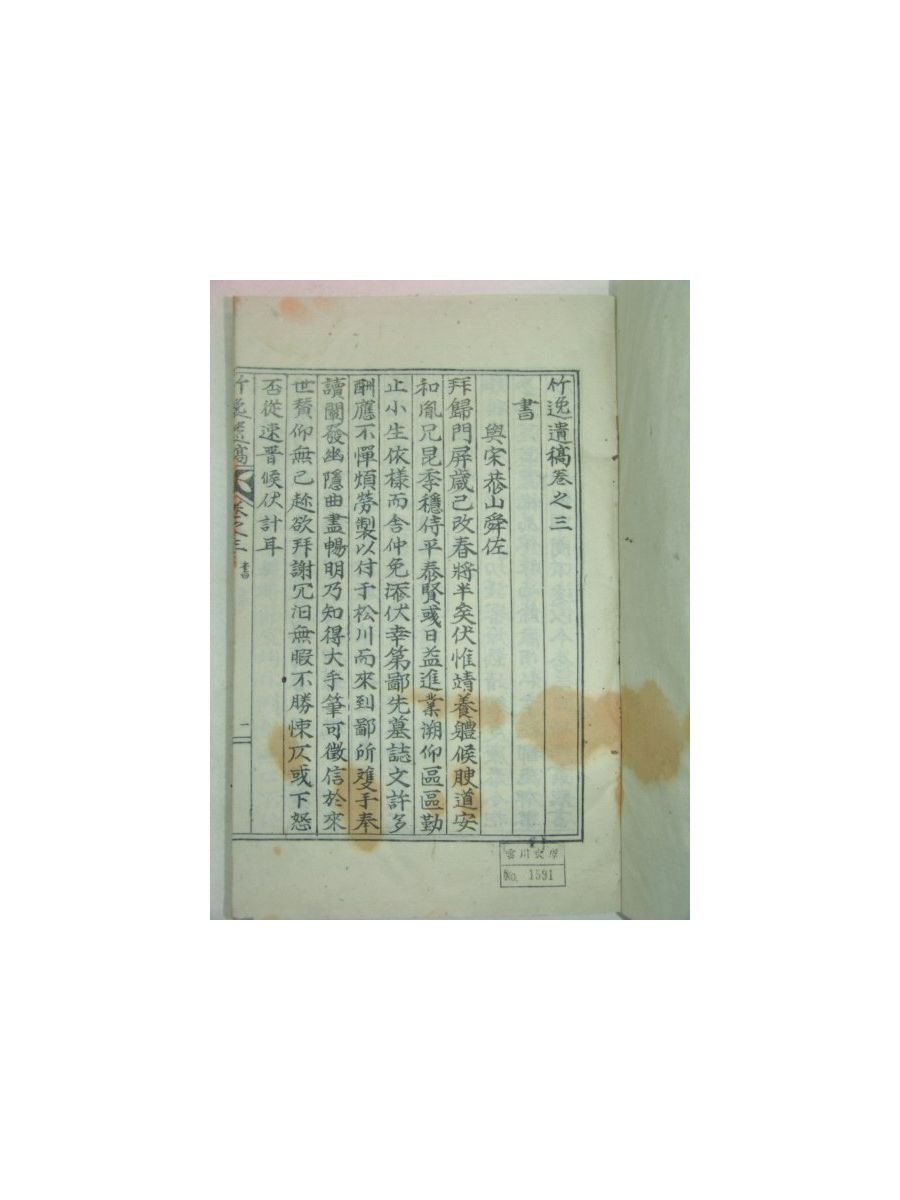 竹逸遺稿卷之三
書
與宋恭山舜佐
拜歸門屏歲已改春將半矣伏惟靖養軆候腴道安
和胤兄昆季穩侍平泰賢彧日益進業溯仰區區勤
止小生依樣而舍仲免添伏幸第鄙先墓誌文許多
酬應不憚煩勞製以付于松川而來到鄙所雙手奉
讀闡發幽隱曲盡暢明乃知得大手筆可徵信於來
世賛仰無已趂欲拜謝冗汨無暇不勝悚仄或下恕
否從速晋候伏計耳
竹逸遺稿 卷之三 書 一
No. 1591